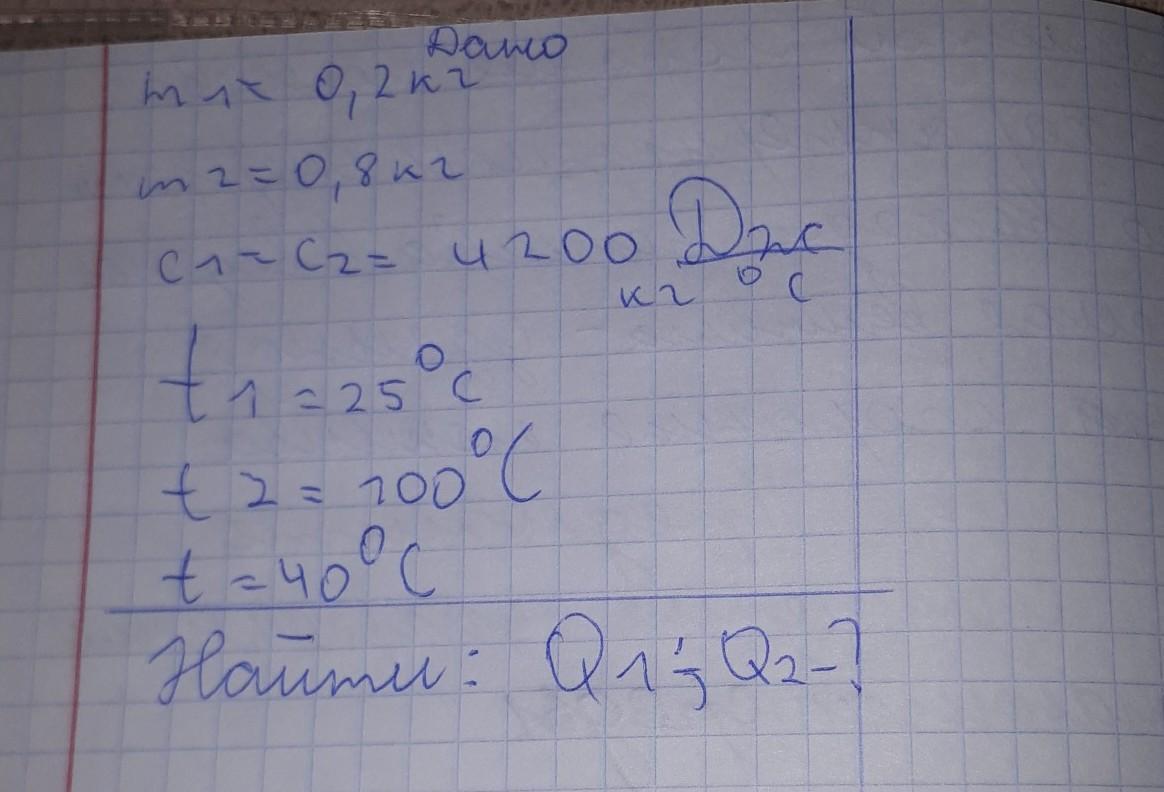 Дано
m1= 0,2кг
m2=0,8кг
c1=c2= 4200 Дж
кг °C
t1=25°C
t2=100°C
t=40°C
Найти: Q1; Q2-?